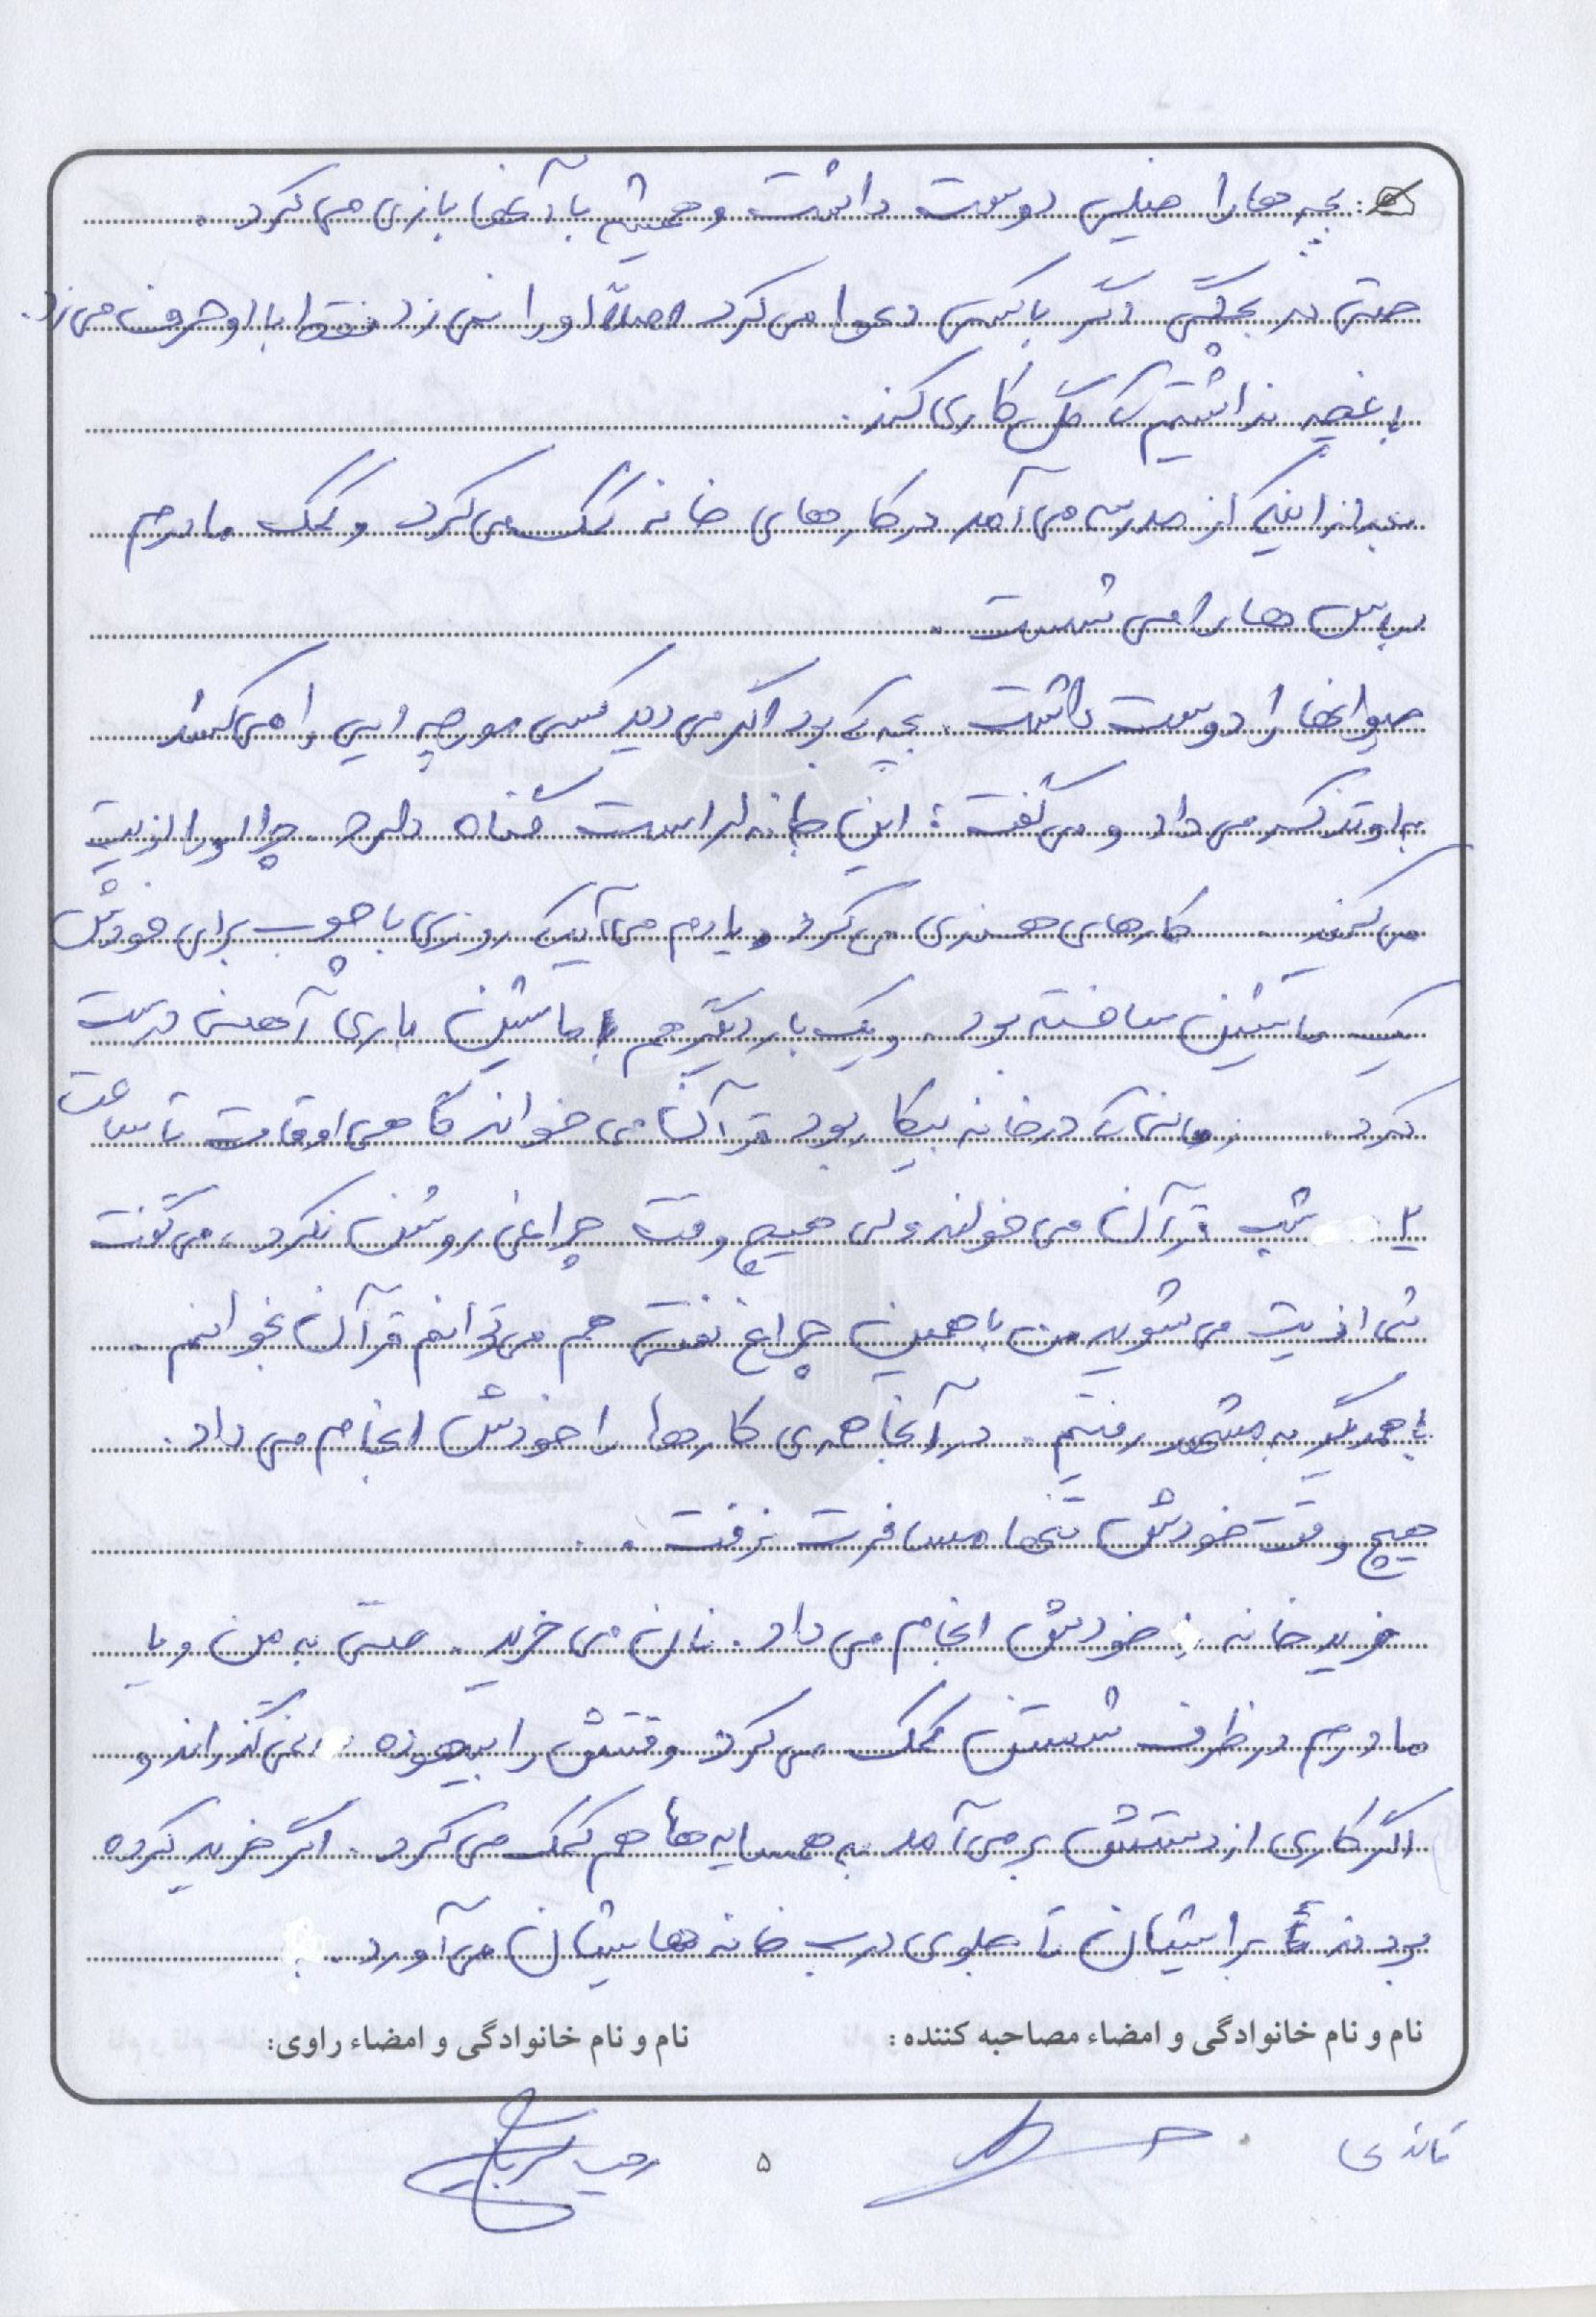 بچه ها را خیلی دوست داشت و همیشه با آنها بازی می کرد.
حتی در بچگی اگر با کسی دعوا می کرد اصلاً او را نمی زد فقط با او حرف می زد.
نداشتیم که گل کاری کند.
بعد از اینکه از مدرسه می آمد در کارهای خانه کمک می کرد و کمک مادرم
لباس ها را می شست.
حیوانها را دوست داشت. بچه که بود اگر می دید کسی مورچه ایی را می کشد
به او تذکر می داد و می گفت: این جانه دار است گناه دارد چرا او را اذیت
می کنید. کارهای هنری می کرد و یادم می آید که روزی با چوب برای خودش
یک ماشین ساخته بود. و یک بار دیگر هم ماشین باری آهنی درست
کرد. زمانی که در خانه بیکار بود قرآن می خواند گاهی اوقات تا ساعت
۲ شب قرآن می خواند ولی هیچ وقت چراغی روشن نکرد، می گفت
شما اذیت می شوید من با همین چراغ نفتی هم می توانم قرآن بخوانم.
با همدیگر به مشهد رفتیم. در آنجا همه ی کارها را خودش انجام می داد.
هیچ وقت خودش تنها مسافرت نرفت.
خرید خانه خودش انجام می داد. نان می خرید. حتی به من و یا
مادرم در ظرف شستن کمک می کرد وقتش را بیهوده نمی گذراند و
اگر کاری از دستش بر می آمد به همسایه ها هم کمک می کرد. اگر خرید کرده
بودند برایشان تا جلوی درب خانه هایشان می آورد.
نام و نام خانوادگی و امضاء مصاحبه کننده: نام و نام خانوادگی و امضاء راوی:
۵